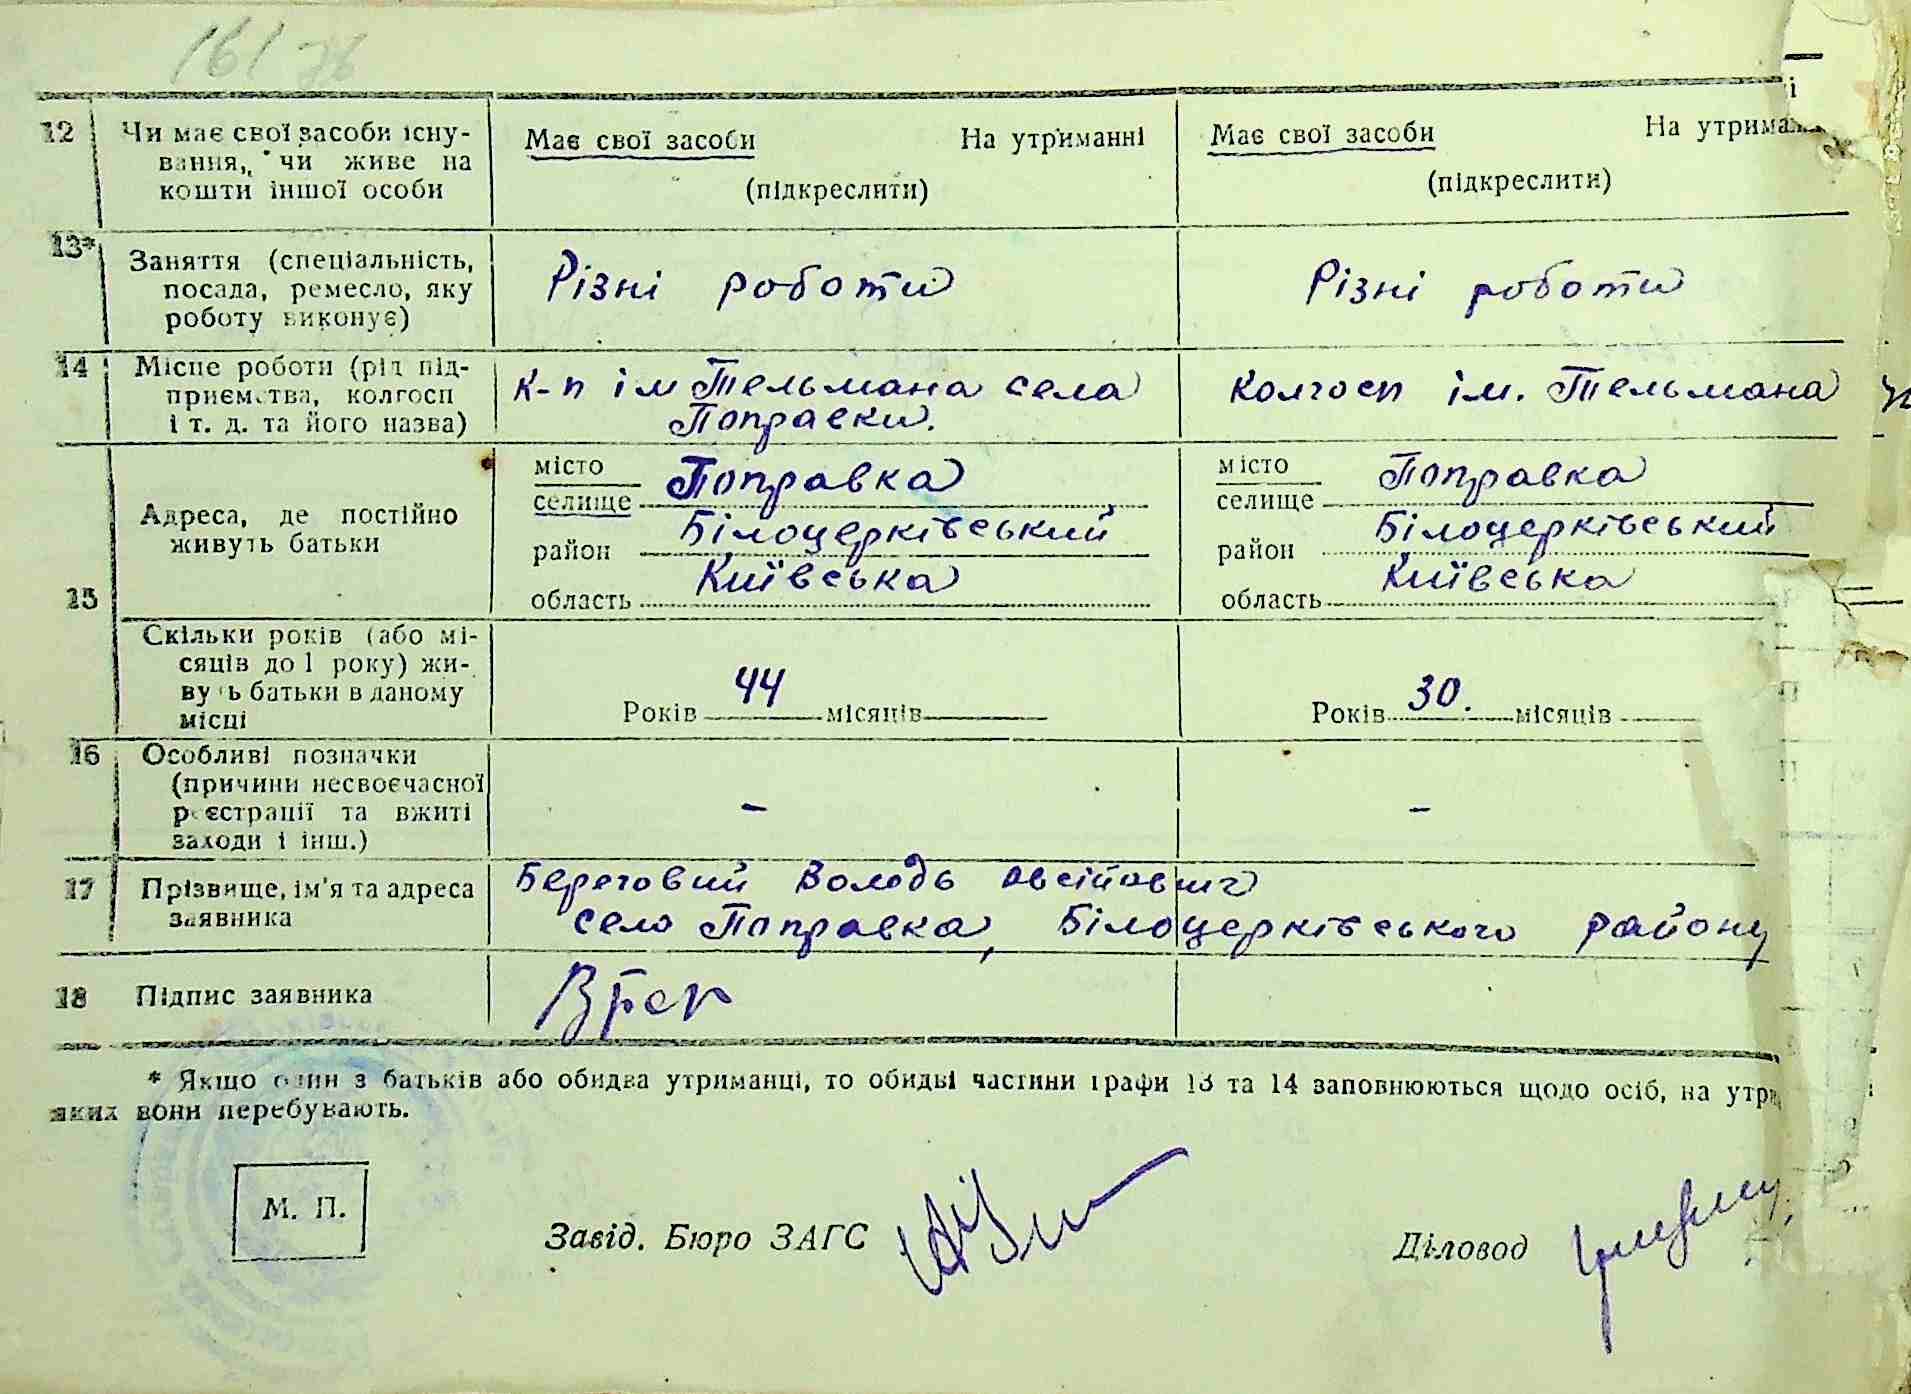 161 76
12 Чи має свої засоби існу- Має свої засоби На утриманні Має свої засоби На утрима
вання, чи живе на
кошти іншої особи (підкреслити) (підкреслити)
13* Заняття (спеціальність, Різні роботи Різні роботи
посада, ремесло, яку
роботу виконує)
14 Місце роботи (рід під- к-п ім Тельмана села Колгосп ім. Тельмана
приємства, колгосп Поправки.
і т. д. та його назва)
15 Адреса, де постійно живуть батьки
місто Поправка місто Поправка
селище селище
район Білоцерківський район Білоцерківський
область Київська область Київська
Скільки років (або мі-
сяців до 1 року) жи-
вуть батьки в даному
місці Років 44 місяців Років 30. місяців
16 Особливі позначки
(причини несвоєчасної
реєстрації та вжиті - -
заходи і інш.)
17 Прізвище, ім'я та адреса Береговий Володь Овсійович
заявника село Поправка, Білоцерківського району
18 Підпис заявника
* Якщо один з батьків або обидва утриманці, то обидві частини графи 13 та 14 заповнюються щодо осіб, на утри
яких вони перебувають.
М. П.
Завід. Бюро ЗАГС Діловод